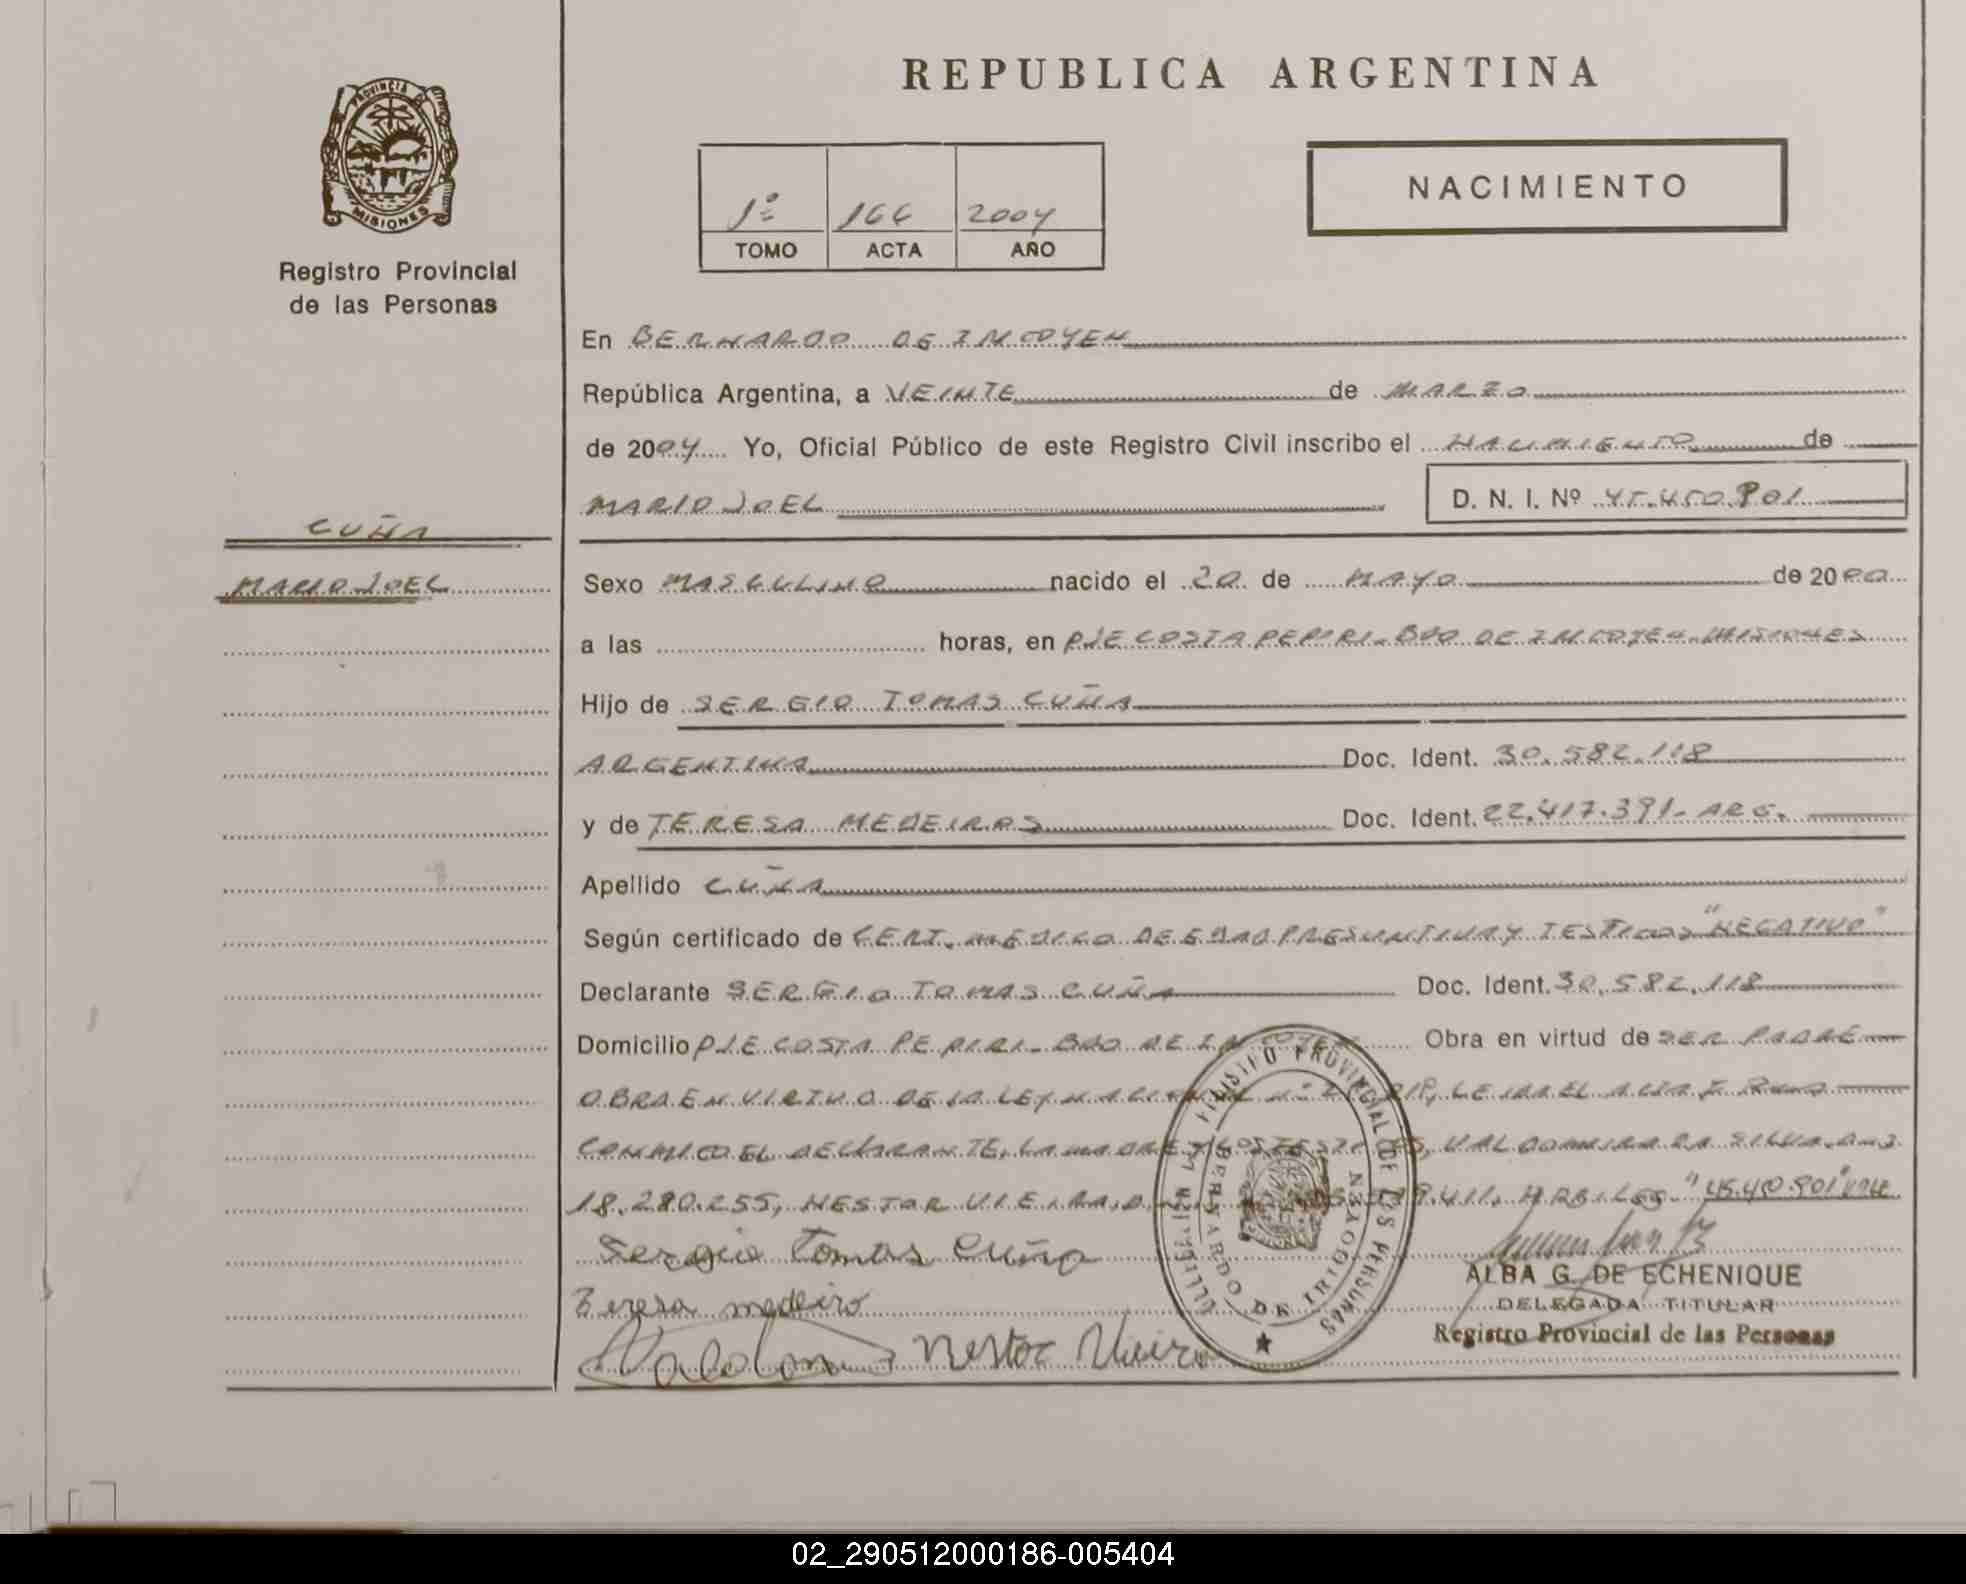 REPUBLICA ARGENTINA
PROVINCIA DE
MISIONES
Registro Provincial
de las Personas
NACIMIENTO
1º 166 2004
TOMO ACTA AÑO
En BERNARDO DE IRIGOYEN
República Argentina, a VEINTE de MARZO
de 2004 Yo, Oficial Público de este Registro Civil inscribo el NACIMIENTO de
MARIO JOEL D. N. I. Nº 45.450.901
CUÑA
MARIO JOEL
Sexo MASCULINO nacido el 20 de MAYO de 2000
a las horas, en PJE COSTA PEPIRI. BDO DE IRIGOYEN. MISIONES
Hijo de SERGIO TOMAS CUÑA
ARGENTINA Doc. Ident. 30.582.118
y de TERESA MEDEIROS Doc. Ident. 22.417.391. ARG.
Apellido CUÑA
Según certificado de CERT. MEDICO DE EDAD PRESUNTIVA Y TESTIGOS "NEGATIVO"
Declarante SERGIO TOMAS CUÑA Doc. Ident. 30.582.118
Domicilio PJE COSTA PEPIRI. BDO DE IRIGOYEN Obra en virtud de SER PADRE
OBRA EN VIRTUD DE LA LEY NACIONAL Nº LEIDA EL ACTA FIRMA
CONMIGO EL DECLARANTE, LA MADRE Y LOS TESTIGOS, VALDOMIRA DA SILVA. DNI
18.280.255, NESTOR VIEIRA, HABILES.
Sergio Tomas Cuña
Teresa medeiro
Nestor Vieira
REGISTRO PROVINCIAL DE LAS PERSONAS
BERNARDO DE IRIGOYEN
ALBA G. DE ECHENIQUE
DELEGADA TITULAR
Registro Provincial de las Personas
02_290512000186-005404